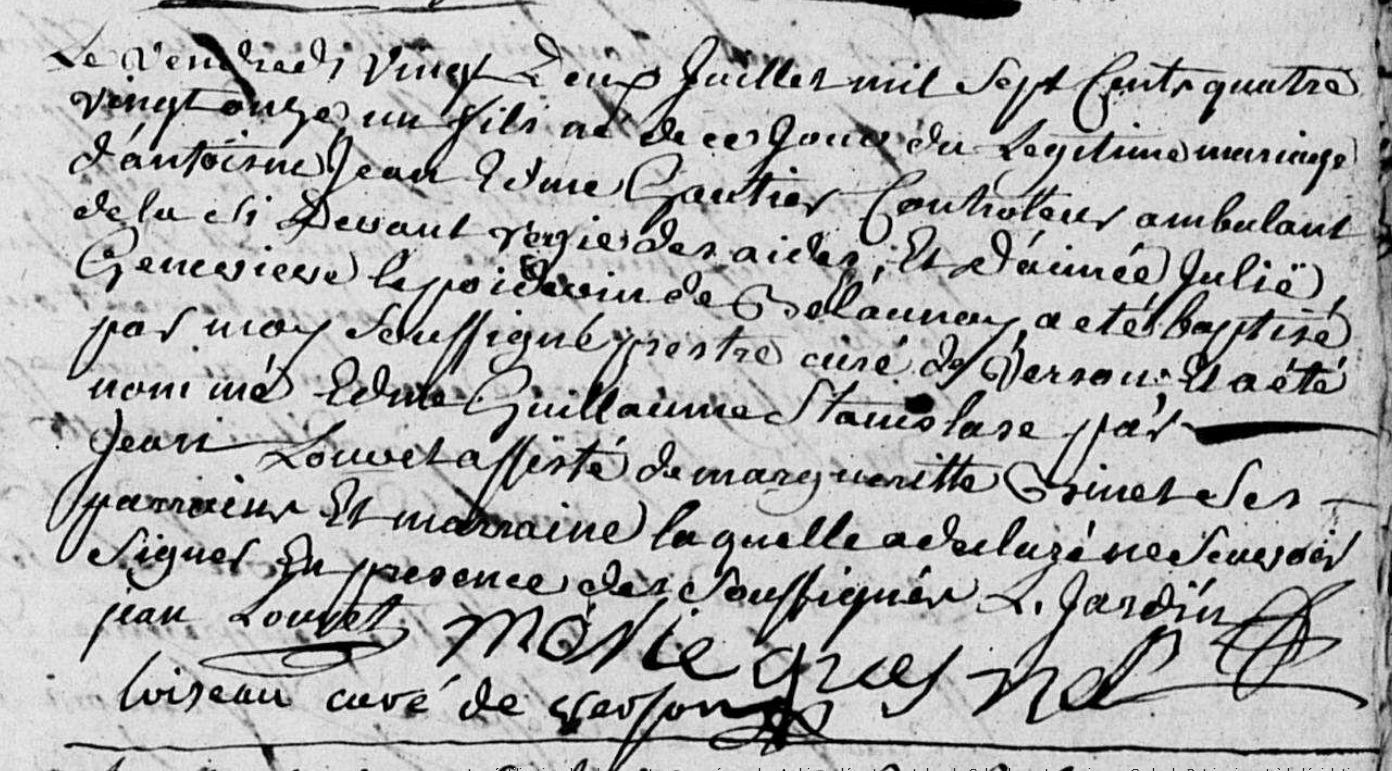 Le vendredi vingt deux Juillet mil sept Cents quatre
vingt onze un fils né de ce Jour du Legitime mariage
d'antoine Jean Edme Gautier Controleur ambulant
de la ci Devant regie des aides, Et d'aimée Julië
Genevieve lepoidevin de Belaunay, a eté baptisé
par moy soussigné prestre curé de Verson Et a été
nommé Edme Guillaume Stanislase par
Jean Louvet assisté de margueritte Brinet Ses
parrains Et marraine laquelle a declaré ne scavoir
signer En presence des soussignés L. Jardin
jean Louvet Marie
loiseau curé de verson